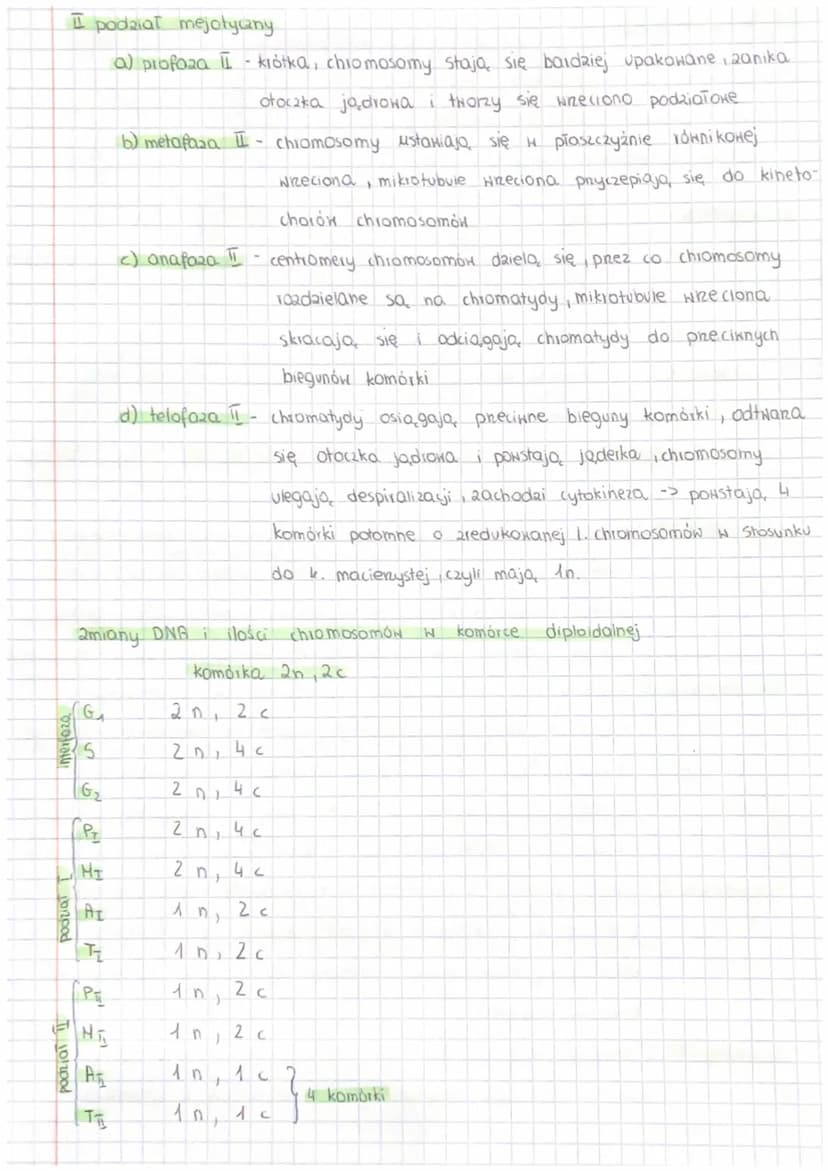 II podział mejotyczny
a) profaza II - krótka, chromosomy stają się bardziej upakowane, zanika
otoczka jądrowa i tworzy się wrzeciono podziałowe
b) metafaza II - chromosomy ustawiają się w płaszczyźnie równikowej
wrzeciona, mikrotubule wrzeciona przyczepiają się do kineto-
chorów chromosomów
c) anafaza II - centromery chromosomów dzielą się, przez co chromosomy
rozdzielane są na chromatydy, mikrotubule wrzeciona
skracają się i odciągają chromatydy do przeciwnych
biegunów komórki
d) telofaza II - chromatydy osiągają przeciwne bieguny komórki, odtwarza
się otoczka jądrowa i powstają jąderka, chromosomy
ulegają despiralizacji, zachodzi cytokineza -> powstają 4
komórki potomne o zredukowanej l. chromosomów w stosunku
do k. macierzystej, czyli mają 1n.
zmiany DNA i ilości chromosomów w komórce diploidalnej
komórka 2n, 2c
interfaza
G1 2n, 2c
S 2n, 4c
G2 2n, 4c
podział I
PI 2n, 4c
MI 2n, 4c
AI 1n, 2c
TI 1n, 2c
podział II
PII 1n, 2c
MII 1n, 2c
AII 1n, 1c
TII 1n, 1c
4 komórki